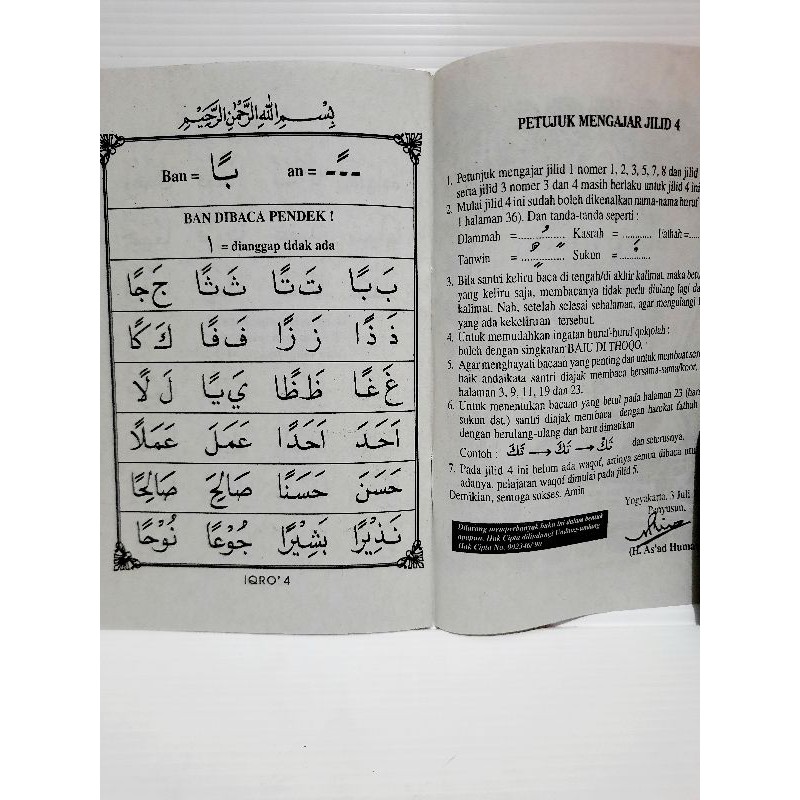 بِسْمِ اللهِ الرَّحْمٰنِ الرَّحِيْمِ
Ban = بًا an = ـًـ
BAN DIBACA PENDEK !
ا = dianggap tidak ada
بَ بًا تَ تًا ثَ ثًا جَ جًا
ذَ ذًا زَ زًا فَ فًا كَ كًا
غَ غًا ظَ ظًا يَ يًا لَ لًا
اَحَدَ اَحَدًا عَمَلَ عَمَلًا
حَسَنَ حَسَنًا صَالِحَ صَالِحًا
نَذِيْرًا بَشِيْرًا جُوْعًا نُوْحًا
IQRO' 4
PETUJUK MENGAJAR JILID 4
1. Petunjuk mengajar jilid 1 nomer 1, 2, 3, 5, 7, 8 dan jilid
serta jilid 3 nomer 3 dan 4 masih berlaku untuk jilid 4 ini
2. Mulai jilid 4 ini sudah boleh dikenalkan nama-nama huruf
halaman 36). Dan tanda-tanda seperti :
Dlammah = ............ Kasrah = ............ Fathah = ....
Tanwin = ............ Sukun = ............
3. Bila santri keliru baca di tengah/di akhir kalimat, maka
yang keliru saja, membacanya tidak perlu diulang lagi
kalimat. Nah, setelah selesai sehalaman, agar mengulangi
yang ada kekeliruan tersebut.
4. Untuk memudahkan ingatan huruf-huruf qolqolah :
boleh dengan singkatan BAJU DI THOQO.
5. Agar menghayati bacaan yang penting dan untuk membuat
baik andaikata santri diajak membaca bersama-sama/koor,
halaman 3, 9, 11, 19 dan 23.
6. Untuk menentukan bacaan yang betul pada halaman 23
sukun dst.) santri diajak membaca dengan harokat fathah
dengan berulang-ulang dan baru dimatikan
Contoh : تَكَ → تَكَ → تَكْ dan seterusnya.
7. Pada jilid 4 ini belum ada waqof, artinya semua dibaca
adanya. pelajaran waqof dimulai pada jilid 5.
Demikian, semoga sukses. Amin
Yogyakarta, 3 Juli
Penyusun,
(H. As'ad Huma
Dilarang memperbanyak buku ini dalam bentuk
apapun. Hak Cipta dilindungi Undang-undang
Hak Cipta No.